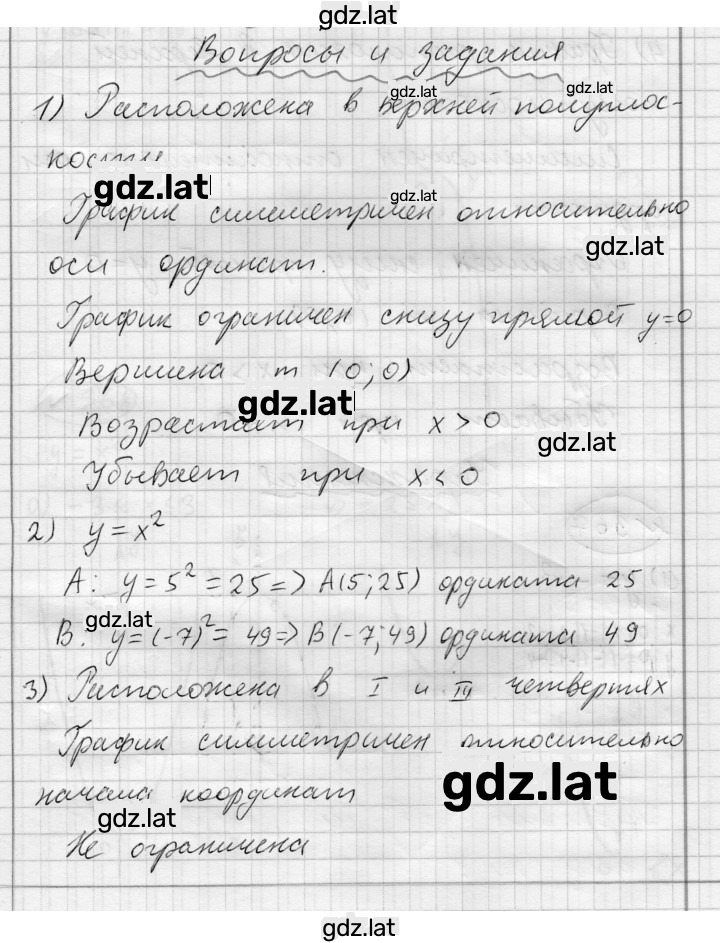 gdz.lat
Вопросы и задания
gdz.lat
gdz.lat
1) Расположена в верхней полуплос-
кости
gdz.lat
gdz.lat
График симметричен относительно
gdz.lat
оси ординат.
График ограничен снизу прямой y=0
Вершина т (0;0)
gdz.lat
Возрастает при x > 0
gdz.lat
Убывает при x < 0
2) y = x²
A: y = 5² = 25 => A(5;25) ордината 25
gdz.lat
B. y = (-7)² = 49 => B(-7;49) ордината 49
3) Расположена в I и III четвертях
График симметричен относительно
gdz.lat
начала координат
gdz.lat
Не ограничена
gdz.lat